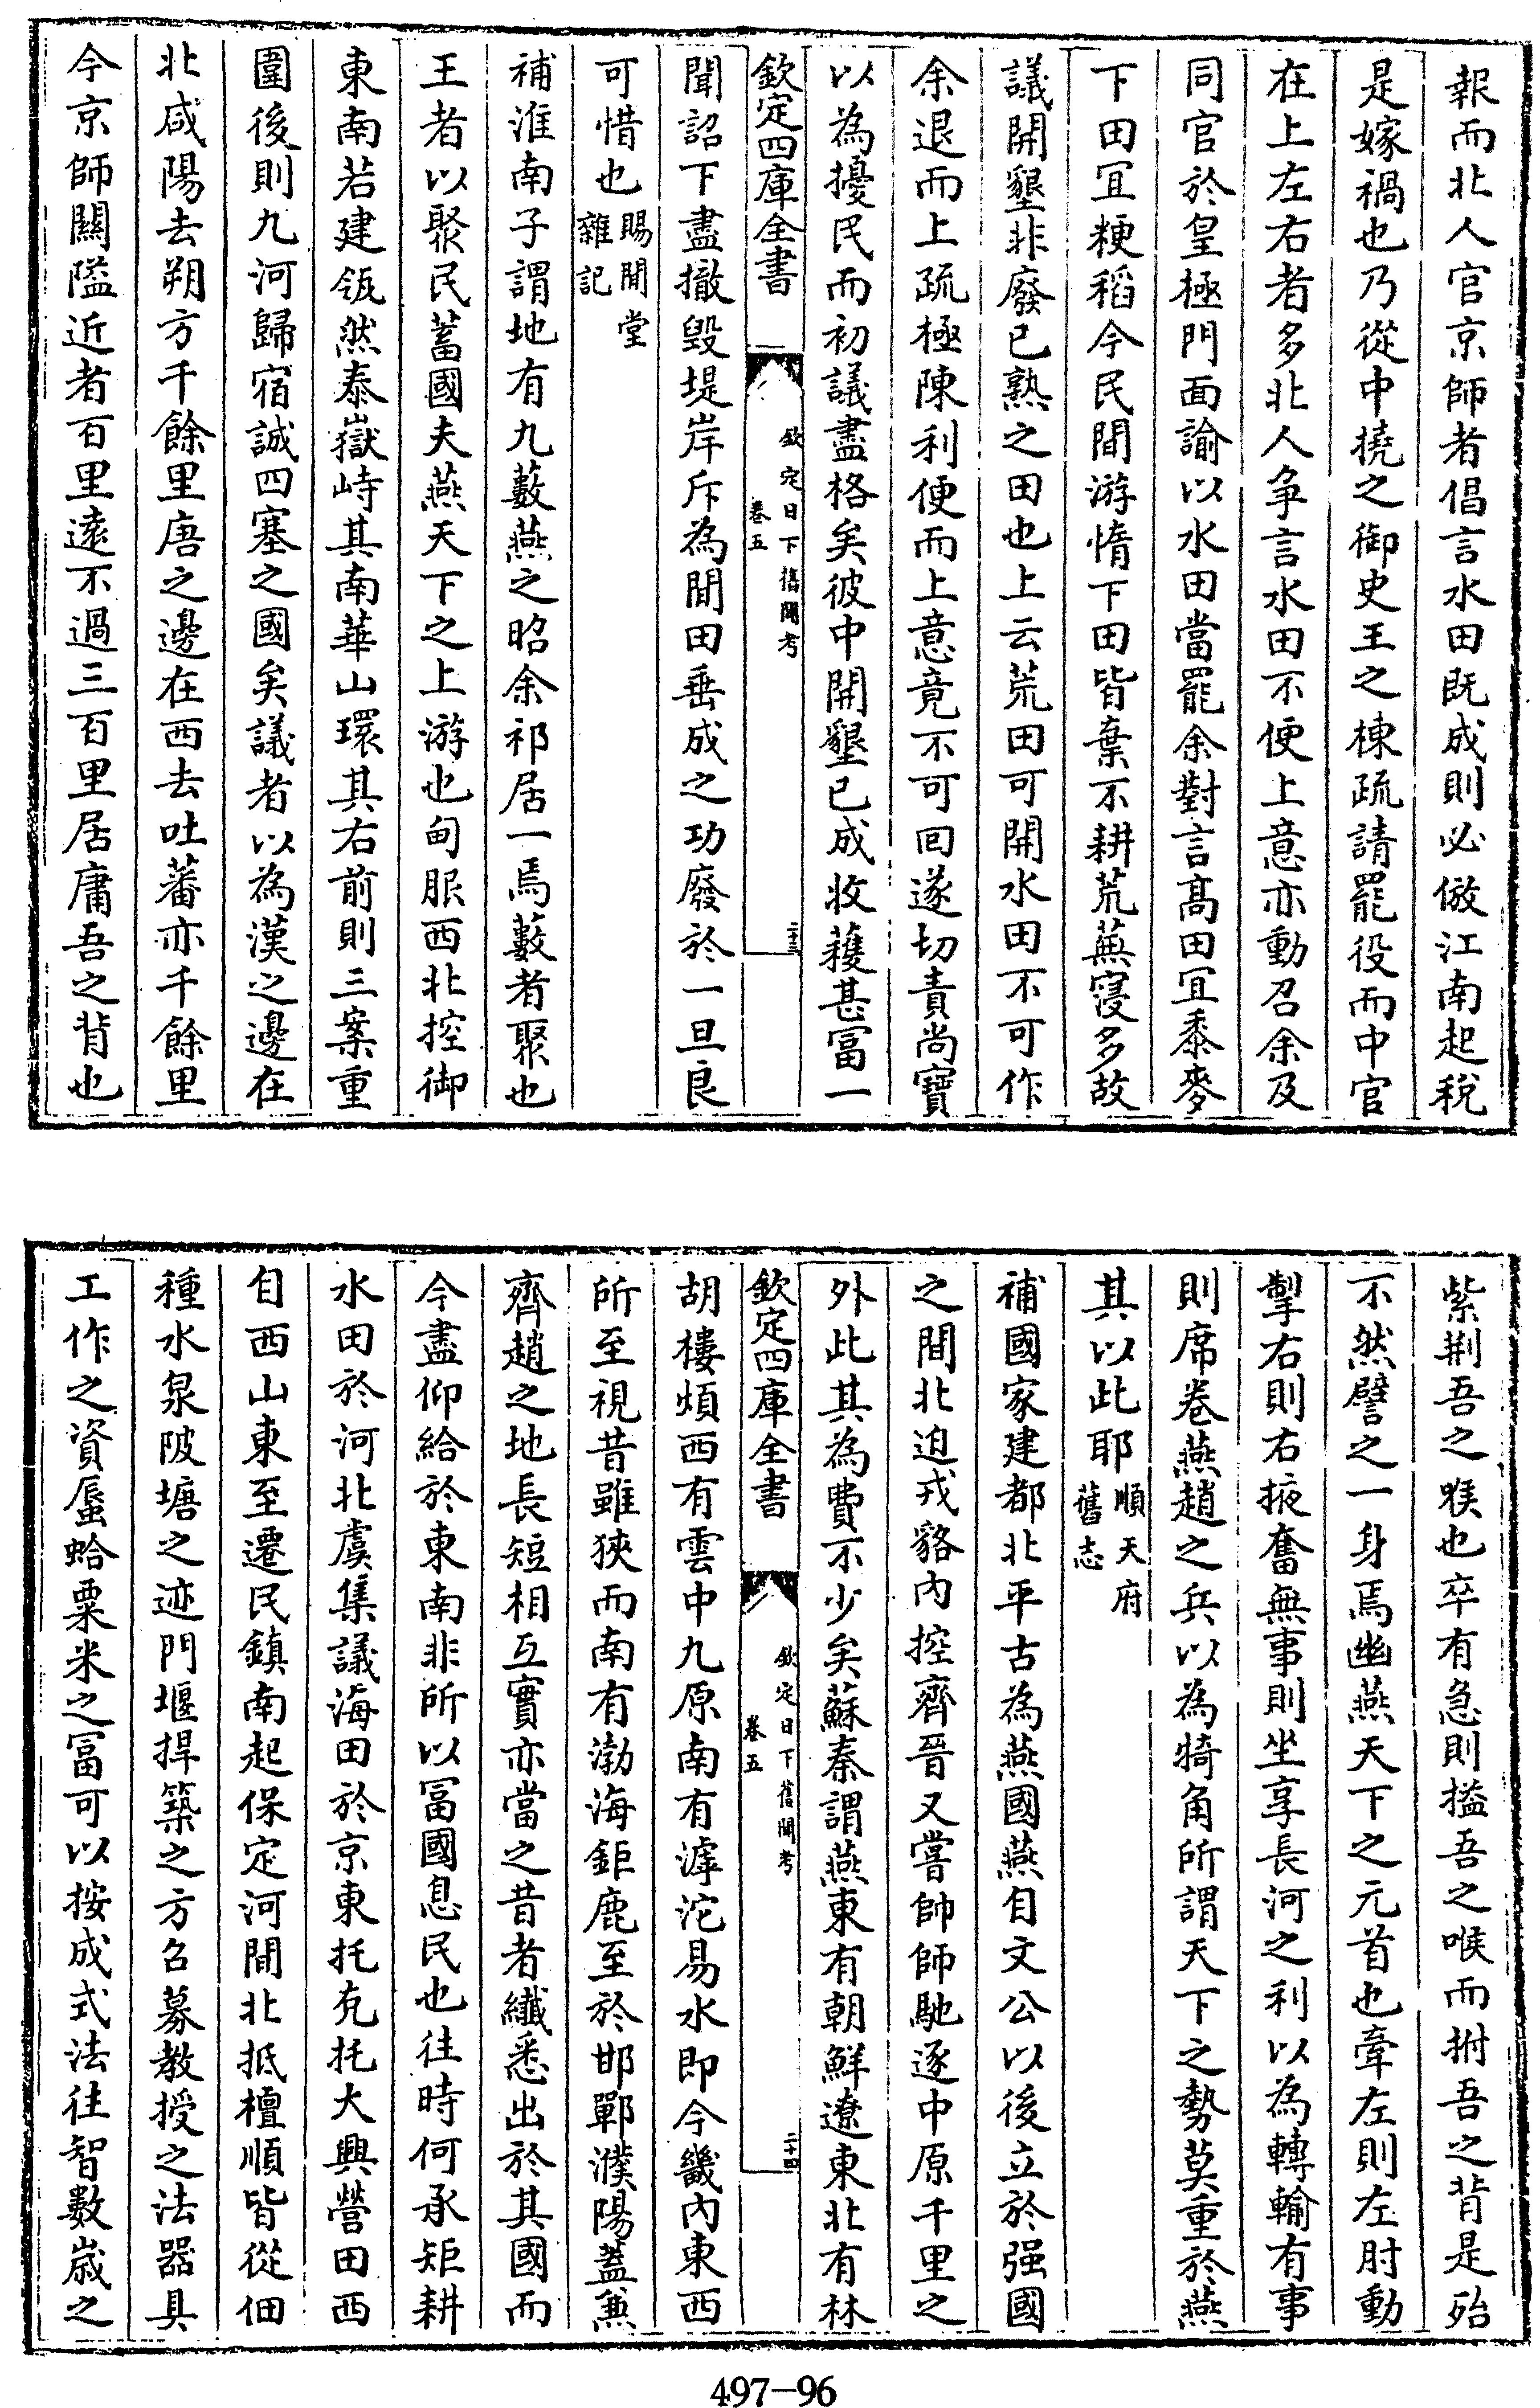 報而北人官京師者倡言水田既成則必倣江南起税
是嫁禍也乃從中撓之御史王之棟疏請罷役而中官
在上左右者多北人争言水田不便上意亦動召余及
同官於皇極門面諭以水田當罷余對言髙田宜黍麥
下田宜粳稻今民間游惰下田皆棄不耕荒蕪寖多故
議開墾非廢已熟之田也上云荒田可開水田不可作
余退而上疏極陳利便而上意竟不可回遂切責尚寳
以為擾民而初議盡格矣彼中開墾已成收穫甚富一
欽定四庫全書
欽定日下舊聞考
卷五
二十三
聞詔下盡撤毀堤岸斥為閒田垂成之功廢於一旦良
可惜也賜閒堂
雜記
補淮南子謂地有九藪燕之昭余祁居一焉藪者聚也
王者以聚民蓄國夫燕天下之上游也甸服西北控御
東南若建瓴然泰嶽峙其南華山環其右前則三案重
圍後則九河歸宿誠四塞之國矣議者以為漢之邊在
北咸陽去朔方千餘里唐之邊在西去吐蕃亦千餘里
今京師闗隘近者百里逺不過三百里居庸吾之背也
紫荆吾之喉也卒有急則搤吾之喉而拊吾之背是殆
不然譬之一身焉幽燕天下之元首也牽左則左肘動
掣右則右掖奮無事則坐享長河之利以為轉輸有事
則席卷燕趙之兵以為犄角所謂天下之勢莫重於燕
其以此耶順天府
舊志
補國家建都北平古為燕國燕自文公以後立於强國
之間北迫戎貉内控齊晉又嘗帥師馳逐中原千里之
外此其為費不少矣蘇秦謂燕東有朝鮮遼東北有林
欽定四庫全書
欽定日下舊聞考
卷五
二十四
胡樓煩西有雲中九原南有滹沱易水即今畿内東西
所至視昔雖狹而南有渤海鉅鹿至於邯鄲濮陽蓋兼
齊趙之地長短相互實亦當之昔者纎悉出於其國而
今盡仰給於東南非所以富國息民也往時何承矩耕
水田於河北虞集議海田於京東托克托大興營田西
自西山東至遷民鎮南起保定河間北抵檀順皆從佃
種水泉陂塘之迹門堰捍築之方召募教授之法器具
工作之資蜃蛤粟米之富可以按成式法往智數嵗之
497-96